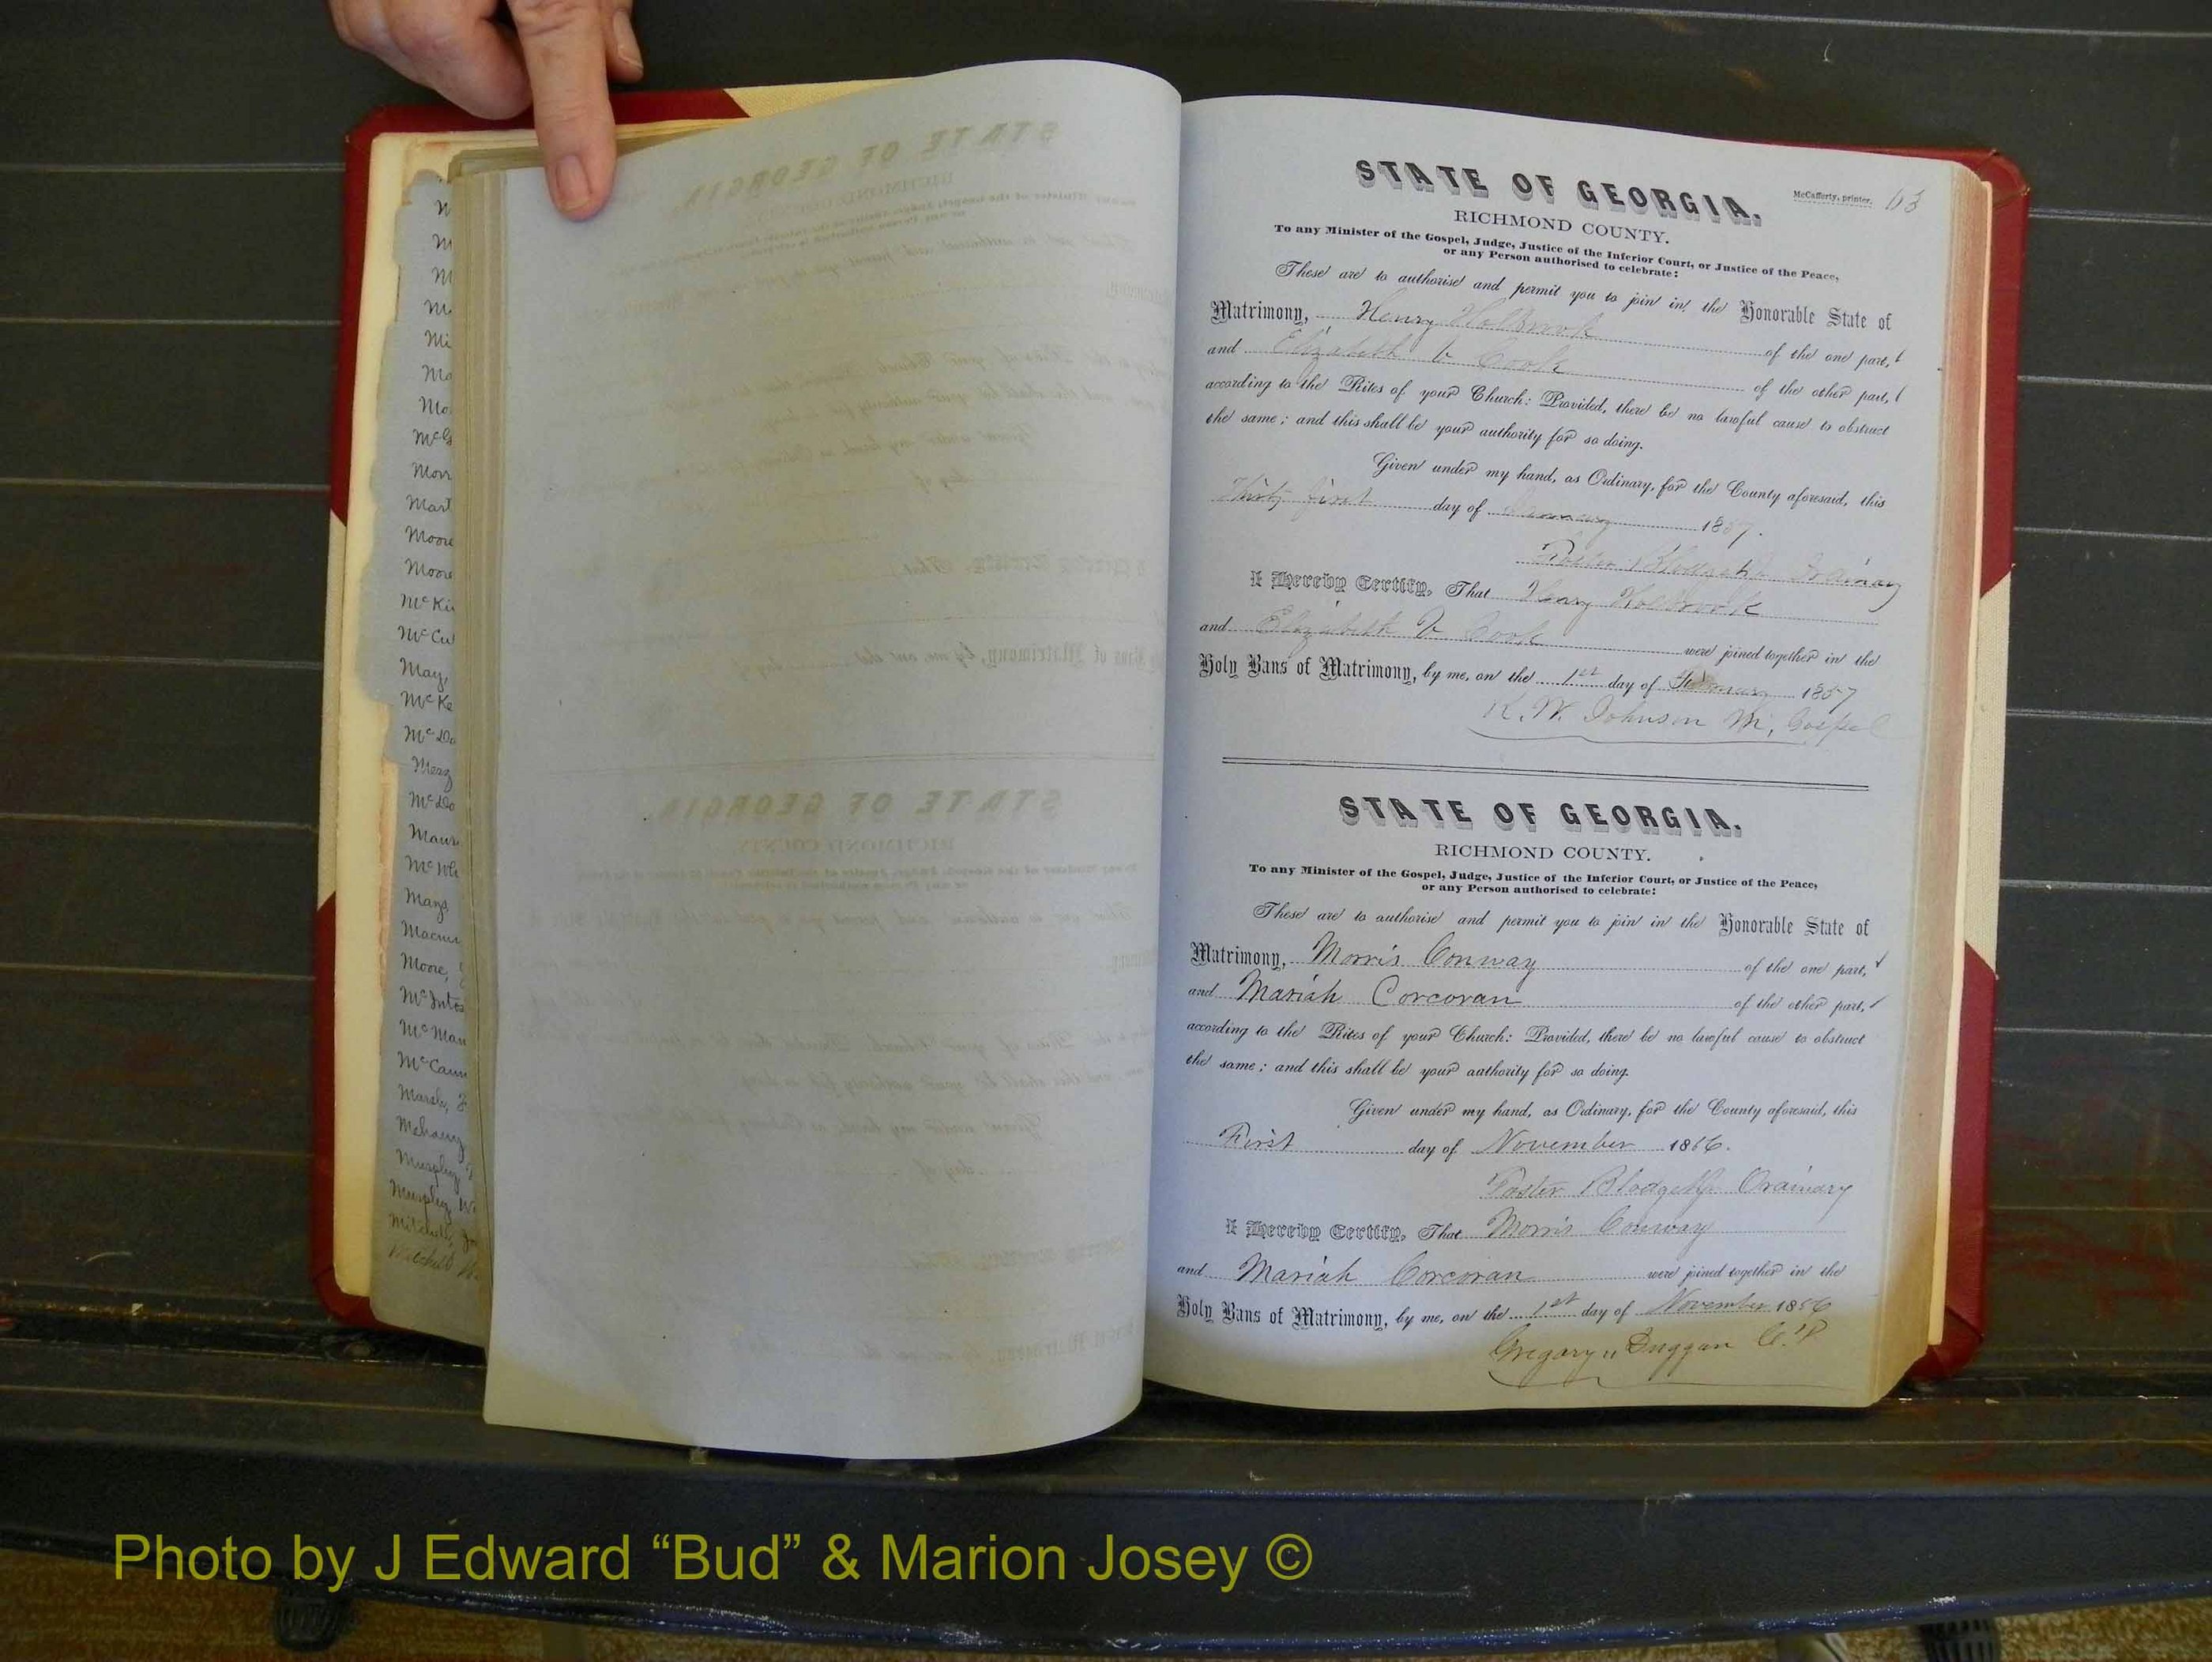 M
M
M
M
Mi
Ma
Mo
McG
Morr
Mart
Moore
Moore
McKi
McCu
May,
McKe
McDo
Merg
McDo
Maur
McWh
Mays
Macmu
Moore,
McIntos
McMan
McCann
Marsh,
Mehany
Murphy
Murphy, W
Mitchell, Jo
Mitchell
McCafferty, printer. 63
STATE OF GEORGIA.
RICHMOND COUNTY.
To any Minister of the Gospel, Judge, Justice of the Inferior Court, or Justice of the Peace,
or any Person authorised to celebrate:
These are to authorise and permit you to join in the Honorable State of
Matrimony, Henry Holbrook of the one part,
and Elizabeth V Cook of the other part,
according to the Rites of your Church: Provided, there be no lawful cause to obstruct
the same; and this shall be your authority for so doing.
Given under my hand, as Ordinary, for the County aforesaid, this
Thirty first day of January 1857.
Foster Blodgett Jr Ordinary
I Hereby Certify, That Henry Holbrook
and Elizabeth V Cook were joined together in the
Holy Bans of Matrimony, by me, on the 1st day of February 1857
K. W. Johnson M, Gospel
STATE OF GEORGIA.
RICHMOND COUNTY.
To any Minister of the Gospel, Judge, Justice of the Inferior Court, or Justice of the Peace,
or any Person authorised to celebrate:
These are to authorise and permit you to join in the Honorable State of
Matrimony, Morris Conway of the one part,
and Mariah Corcoran of the other part,
according to the Rites of your Church: Provided, there be no lawful cause to obstruct
the same; and this shall be your authority for so doing.
Given under my hand, as Ordinary, for the County aforesaid, this
First day of November 1856.
Foster Blodgett Jr Ordinary
I Hereby Certify, That Morris Conway
and Mariah Corcoran were joined together in the
Holy Bans of Matrimony, by me, on the 1st day of November 1856
Gregory Duggan C.P
Photo by J Edward “Bud” & Marion Josey ©